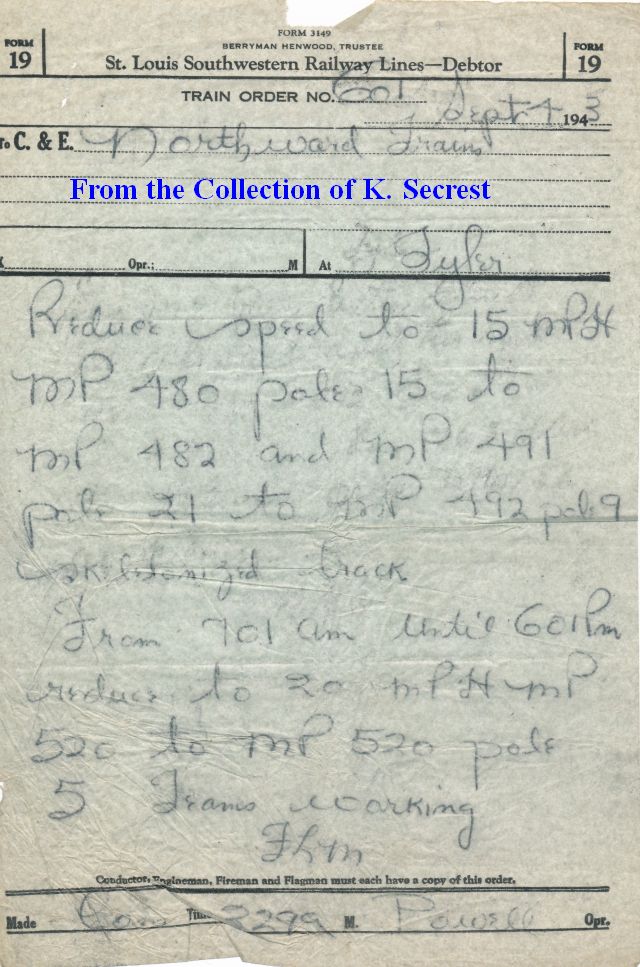 FORM 3149
BERRYMAN HENWOOD, TRUSTEE
FORM 19
St. Louis Southwestern Railway Lines—Debtor
FORM 19
TRAIN ORDER NO. 601
Sept 4 1943
To C. & E. Northward Trains
From the Collection of K. Secrest
Opr.; M At Tyler
Reduce speed to 15 MPH
MP 480 pole 15 to
MP 482 and MP 491
pole 21 to MP 492 pole 9
skeletonized track
From 701 am until 601 Pm
reduce to 20 MPH MP
520 to MP 520 pole
5 Teams working
Conductor, Engineman, Fireman and Flagman must each have a copy of this order.
Made Time M. Powell Opr.